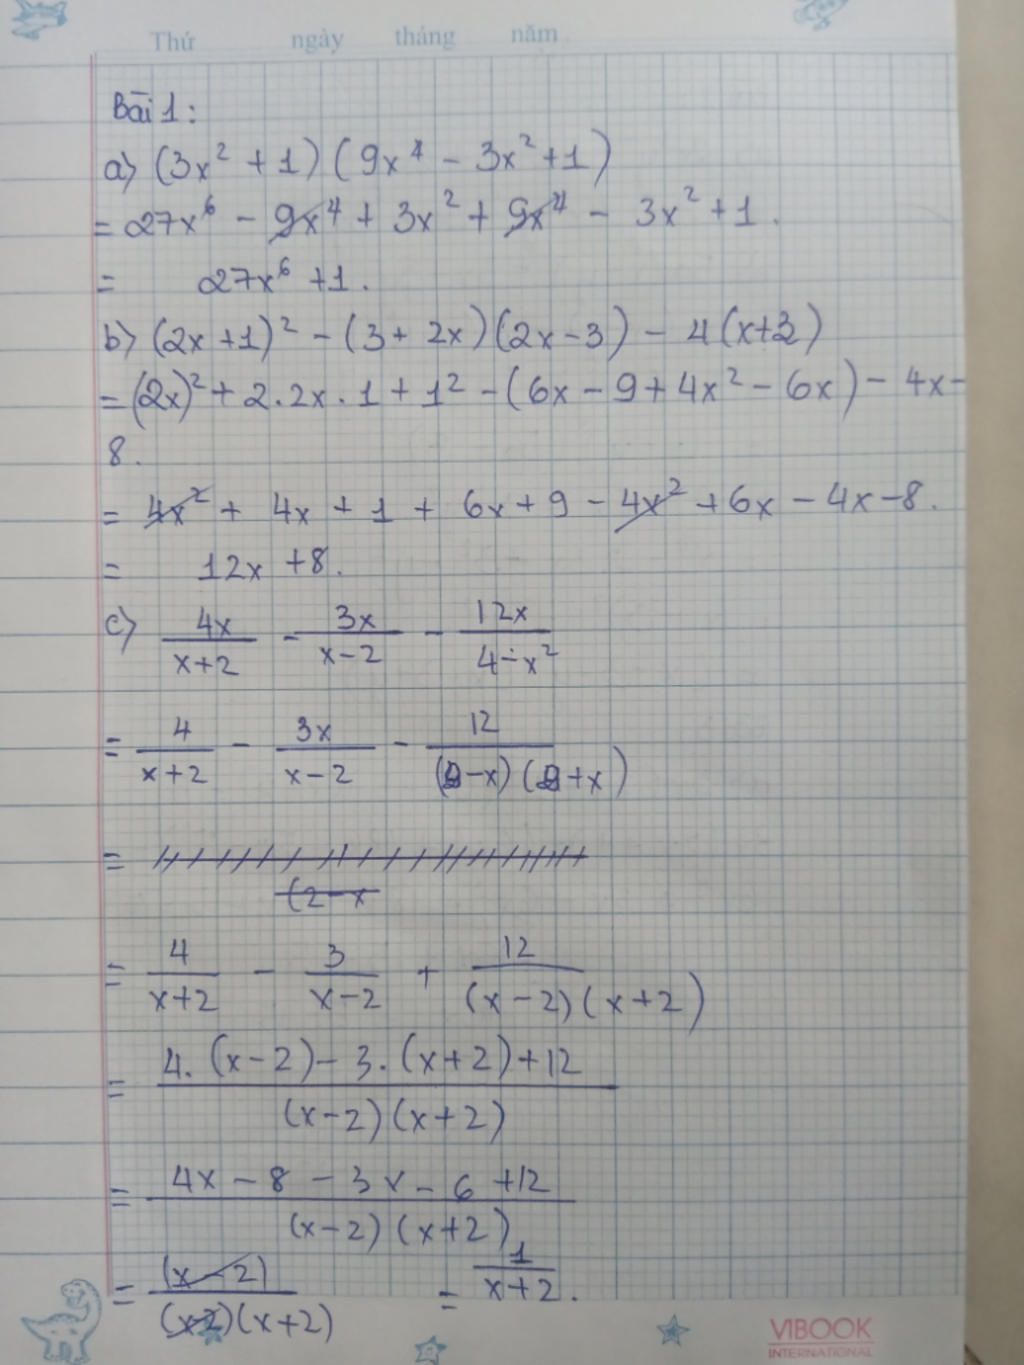 Thứ ngày tháng năm
Bài 1:
a) (3x² + 1) (9x⁴ - 3x² + 1)
= 27x⁶ - 9x⁴ + 3x² + 9x⁴ - 3x² + 1.
= 27x⁶ + 1.
b) (2x + 1)² - (3 + 2x)(2x - 3) - 4(x+2)
= (2x)² + 2.2x.1 + 1² - (6x - 9 + 4x² - 6x) - 4x -
8.
= 4x² + 4x + 1 + 6x + 9 - 4x² + 6x - 4x - 8.
= 12x + 8.
c) 4x/(x+2) - 3x/(x-2) - 12x/(4-x²)
= 4/(x+2) - 3x/(x-2) - 12/((2-x)(2+x))
=
(2-x
= 4/(x+2) - 3/(x-2) + 12/((x-2)(x+2))
= (4.(x-2) - 3.(x+2) + 12)/((x-2)(x+2))
= (4x - 8 - 3x - 6 + 12)/((x-2)(x+2))
= (x-2)/((x-2)(x+2)) = 1/(x+2).
VIBOOK
INTERNATIONAL